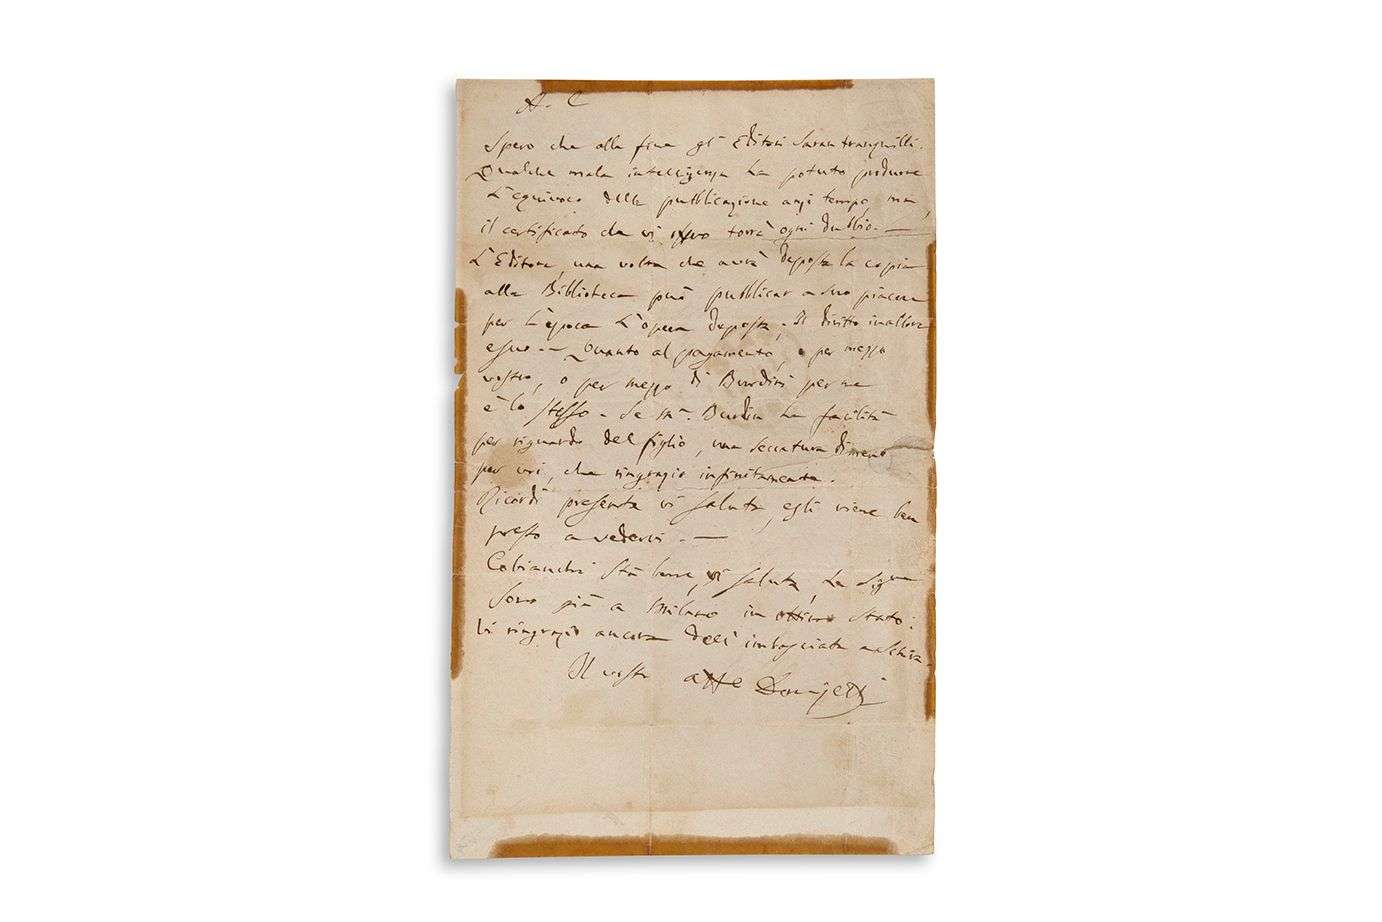 A. C
Spero che alla fine gl' Editori saran tranquilli.
Qualche mala intelligenza ha potuto produrre
l'equivoco della pubblicazione anzi tempo, ma,
il certificato che vi torrà ogni dubbio. —
L'Editore, una volta che avrà deposta la copia
alla Biblioteca può pubblicar a suo piacere
per l'epoca l'opera deposta. Il diritto
è suo. — Quanto al pagamento, o per mezzo
vostro, o per mezzo di per me
è lo stesso. Se ha facilità
per riguardo del figlio, una seccatura di meno
per voi, che ringrazio infinitamente.
Ricordi presente vi saluta, egli viene ben
presto a vedervi. —
Cobianchi stà bene, vi saluta, la Sigra
sono già a Milano in ottimo stato:
Vi ringrazio ancora dell' imbasciata
Il vostro affe Donizetti